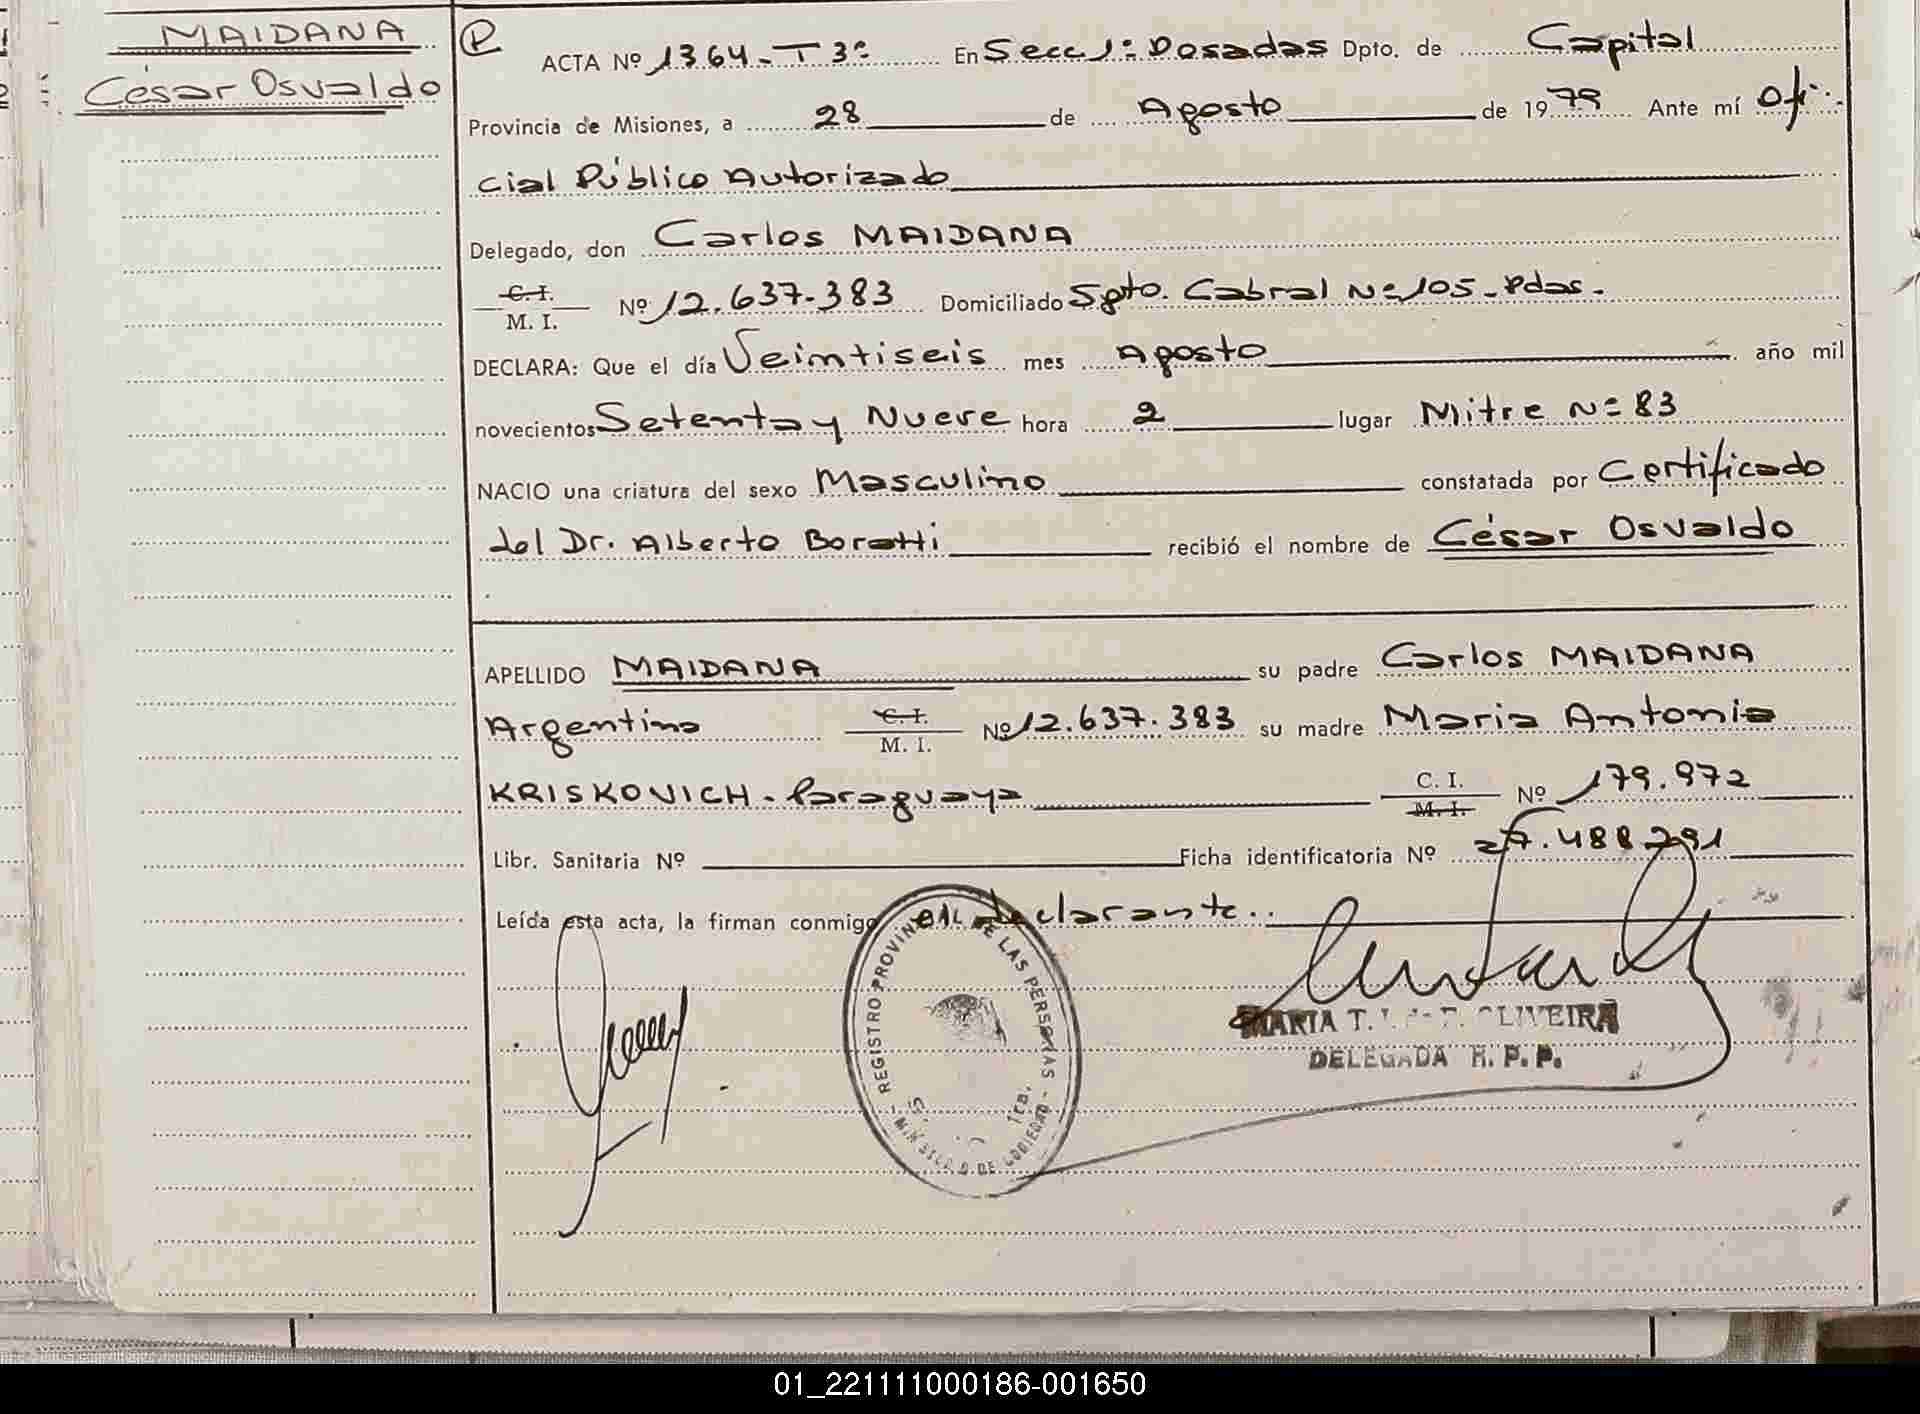 MAIDANA
César Osvaldo
P
ACTA Nº 1364-T 3º En Secc 1º Posadas Dpto. de Capital
Provincia de Misiones, a 28 de Agosto de 1979 Ante mí Ofi
cial Público Autorizado
Delegado, don Carlos MAIDANA
C. I.
M. I. Nº 12.637.383 Domiciliado Sgto. Cabral Nº 105-Pdas.
DECLARA: Que el día Veintiseis mes Agosto año mil
novecientos Setenta y Nueve hora 2 lugar Mitre Nº 83
NACIO una criatura del sexo Masculino constatada por Certificado
del Dr. Alberto Boratti recibió el nombre de César Osvaldo
APELLIDO MAIDANA su padre Carlos MAIDANA
Argentino C. I. M. I. Nº 12.637.383 su madre Maria Antonia
KRISKOVICH - Paraguaya C. I. M. I. Nº 179.972
Libr. Sanitaria Nº Ficha identificatoria Nº 27.488.291
Leída esta acta, la firman conmigo el declarante..
REGISTRO PROVINCIAL DE LAS PERSONAS
MINISTERIO DE GOBIERNO
1ra.
MARIA T. OLIVEIRA
DELEGADA R. P. P.
01_221111000186-001650